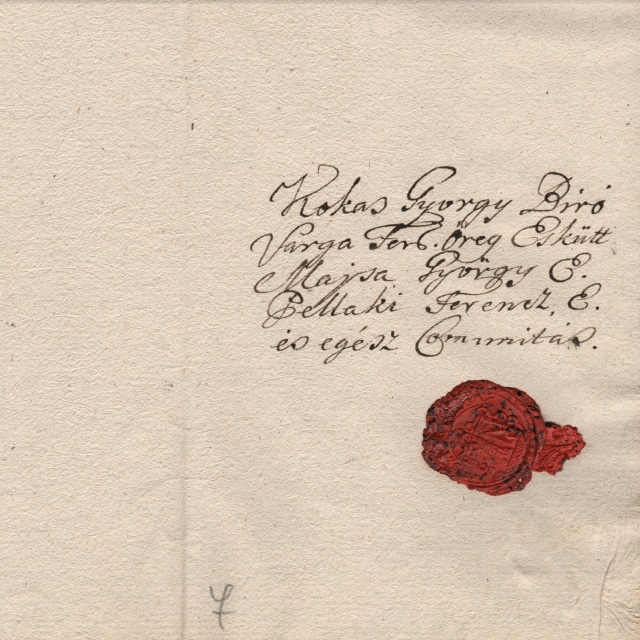 Kokas György Biró
Varga Ferb. Öreg Eskütt
Majsa György E.
Pellaki Ferencz, E.
és egész Communitás.
7